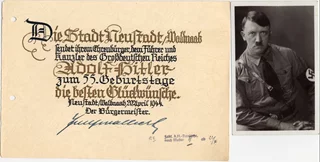 Die Stadt Neustadt/Waldnaab
sendet ihrem Ehrenbürger, dem Führer und
Kanzler des Großdeutschen Reiches
Adolf Hitler
zum 55. Geburtstage
die besten Glückwünsche.
Neustadt/Waldnaab, 20. April 1944
Der Bürgermeister.